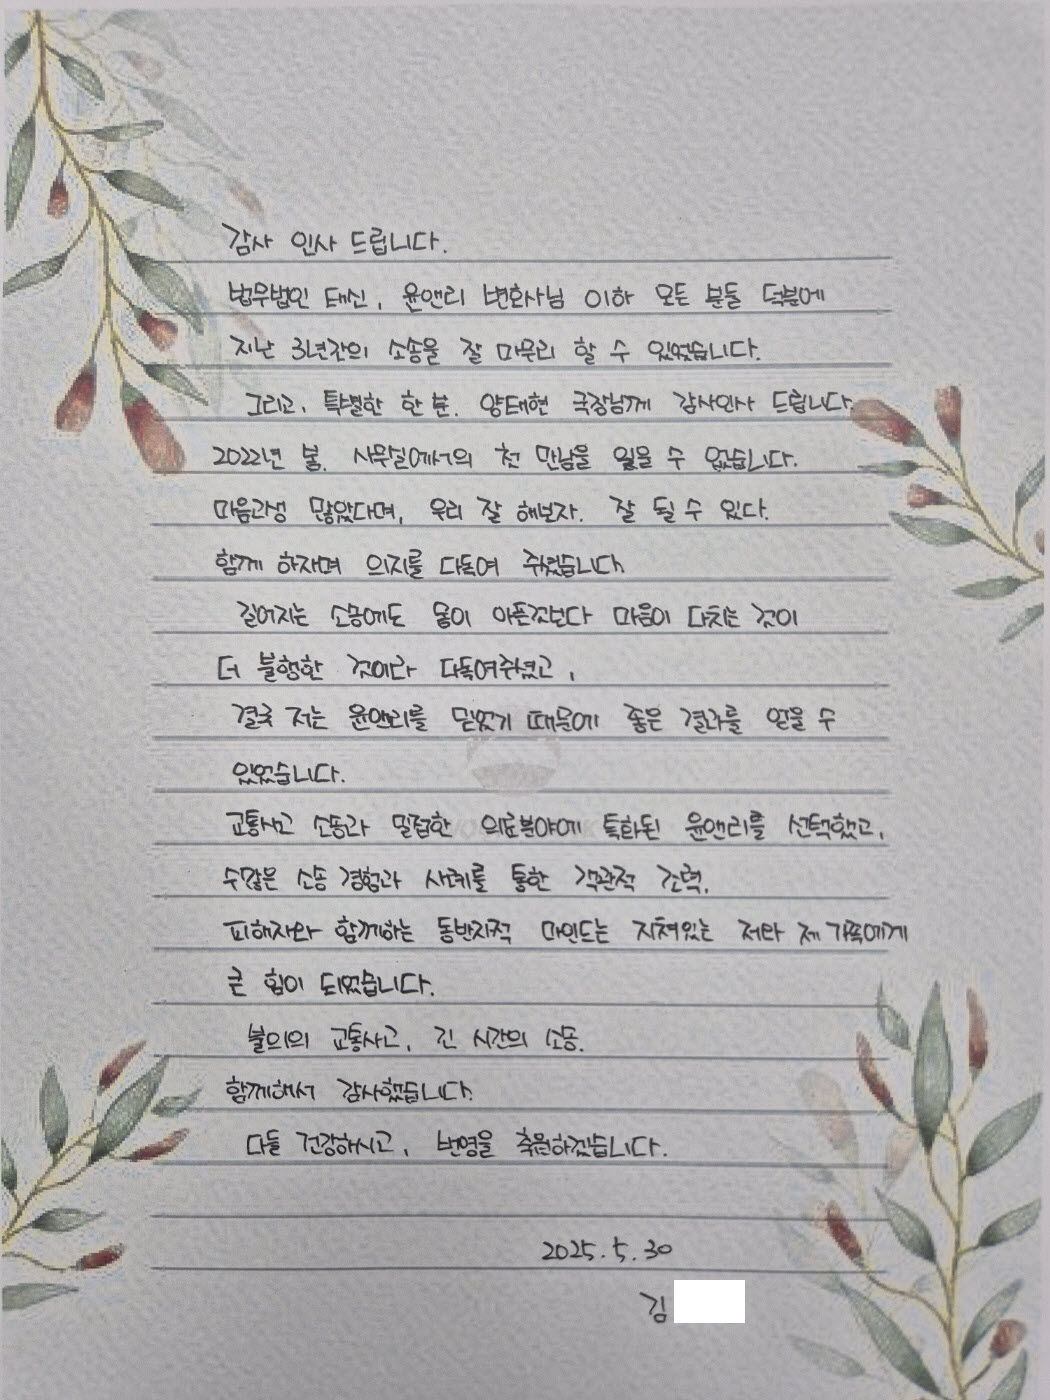 감사 인사 드립니다.
법무법인 태신, 윤앤리 변호사님 이하 모든 분들 덕분에
지난 3년간의 소송을 잘 마무리 할 수 있었습니다.
그리고, 특별한 한 분. 양태현 국장님께 감사인사 드립니다.
2022년 봄. 사무실에서의 첫 만남을 잊을 수 없습니다.
마음고생 많았다며, 우리 잘 해보자. 잘 될 수 있다.
함께 하자며 의지를 다독여 주셨습니다
길어지는 소송에도 몸이 아픈것보다 마음이 다치는 것이
더 불행한 것이라 다독여주셨고,
결국 저는 윤앤리를 믿었기 때문에 좋은 결과를 얻을 수
있었습니다.
교통사고 소송과 밀접한 의료분야에 특화된 윤앤리를 선택했고,
수많은 소송 경험과 사례를 통한 객관적 조력,
피해자와 함께하는 동반자적 마인드는 지쳐있는 저와 제 가족에게
큰 힘이 되었습니다.
불의의 교통사고, 긴 시간의 소송.
함께해서 감사했습니다.
다들 건강하시고, 번영을 축원하겠습니다.
2025. 5. 30
김